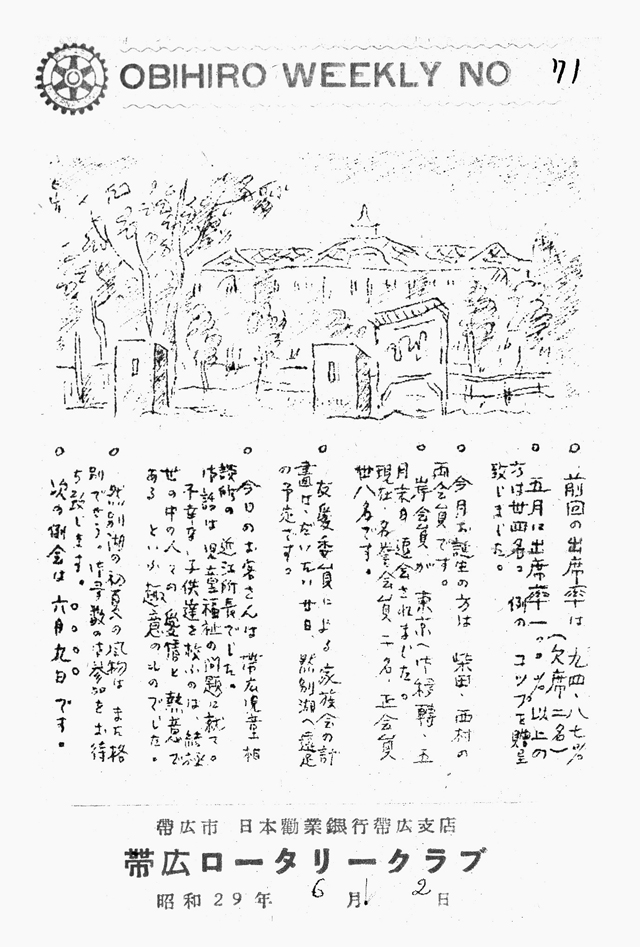 OBIHIRO WEEKLY NO 71
前回の出席率は 九四・八七%
(欠席二名)
五月に出席率一〇〇%以上の
方は廿四名。例の コップを贈呈
致しました。
今月お誕生の方は 柴田・西村の
両会員です。
岸会員が 東京へ御移轉・五
月末日 退会されました。
現在・名誉会員二名・正会員
卅八名です。
友愛委員による 家族会の計
畫は、だいたい廿日、然別湖へ遠足
の予定です。
今日のお客さんは 帯広児童相
談所の 近江所長でした。
御話は児童福祉の問題に就て。
不幸な子供達を救ふのは、結極
世の中の人々の愛情と熱意で
ある といふ趣意のものでした。
然別湖の初夏の風物は また格
別でせう。御多数の御参加をお待
ち致します。
次の例会は 六月九日です。
帶広市 日本勸業銀行帶広支店
帯広ロータリークラブ
昭和29年 6月 2日